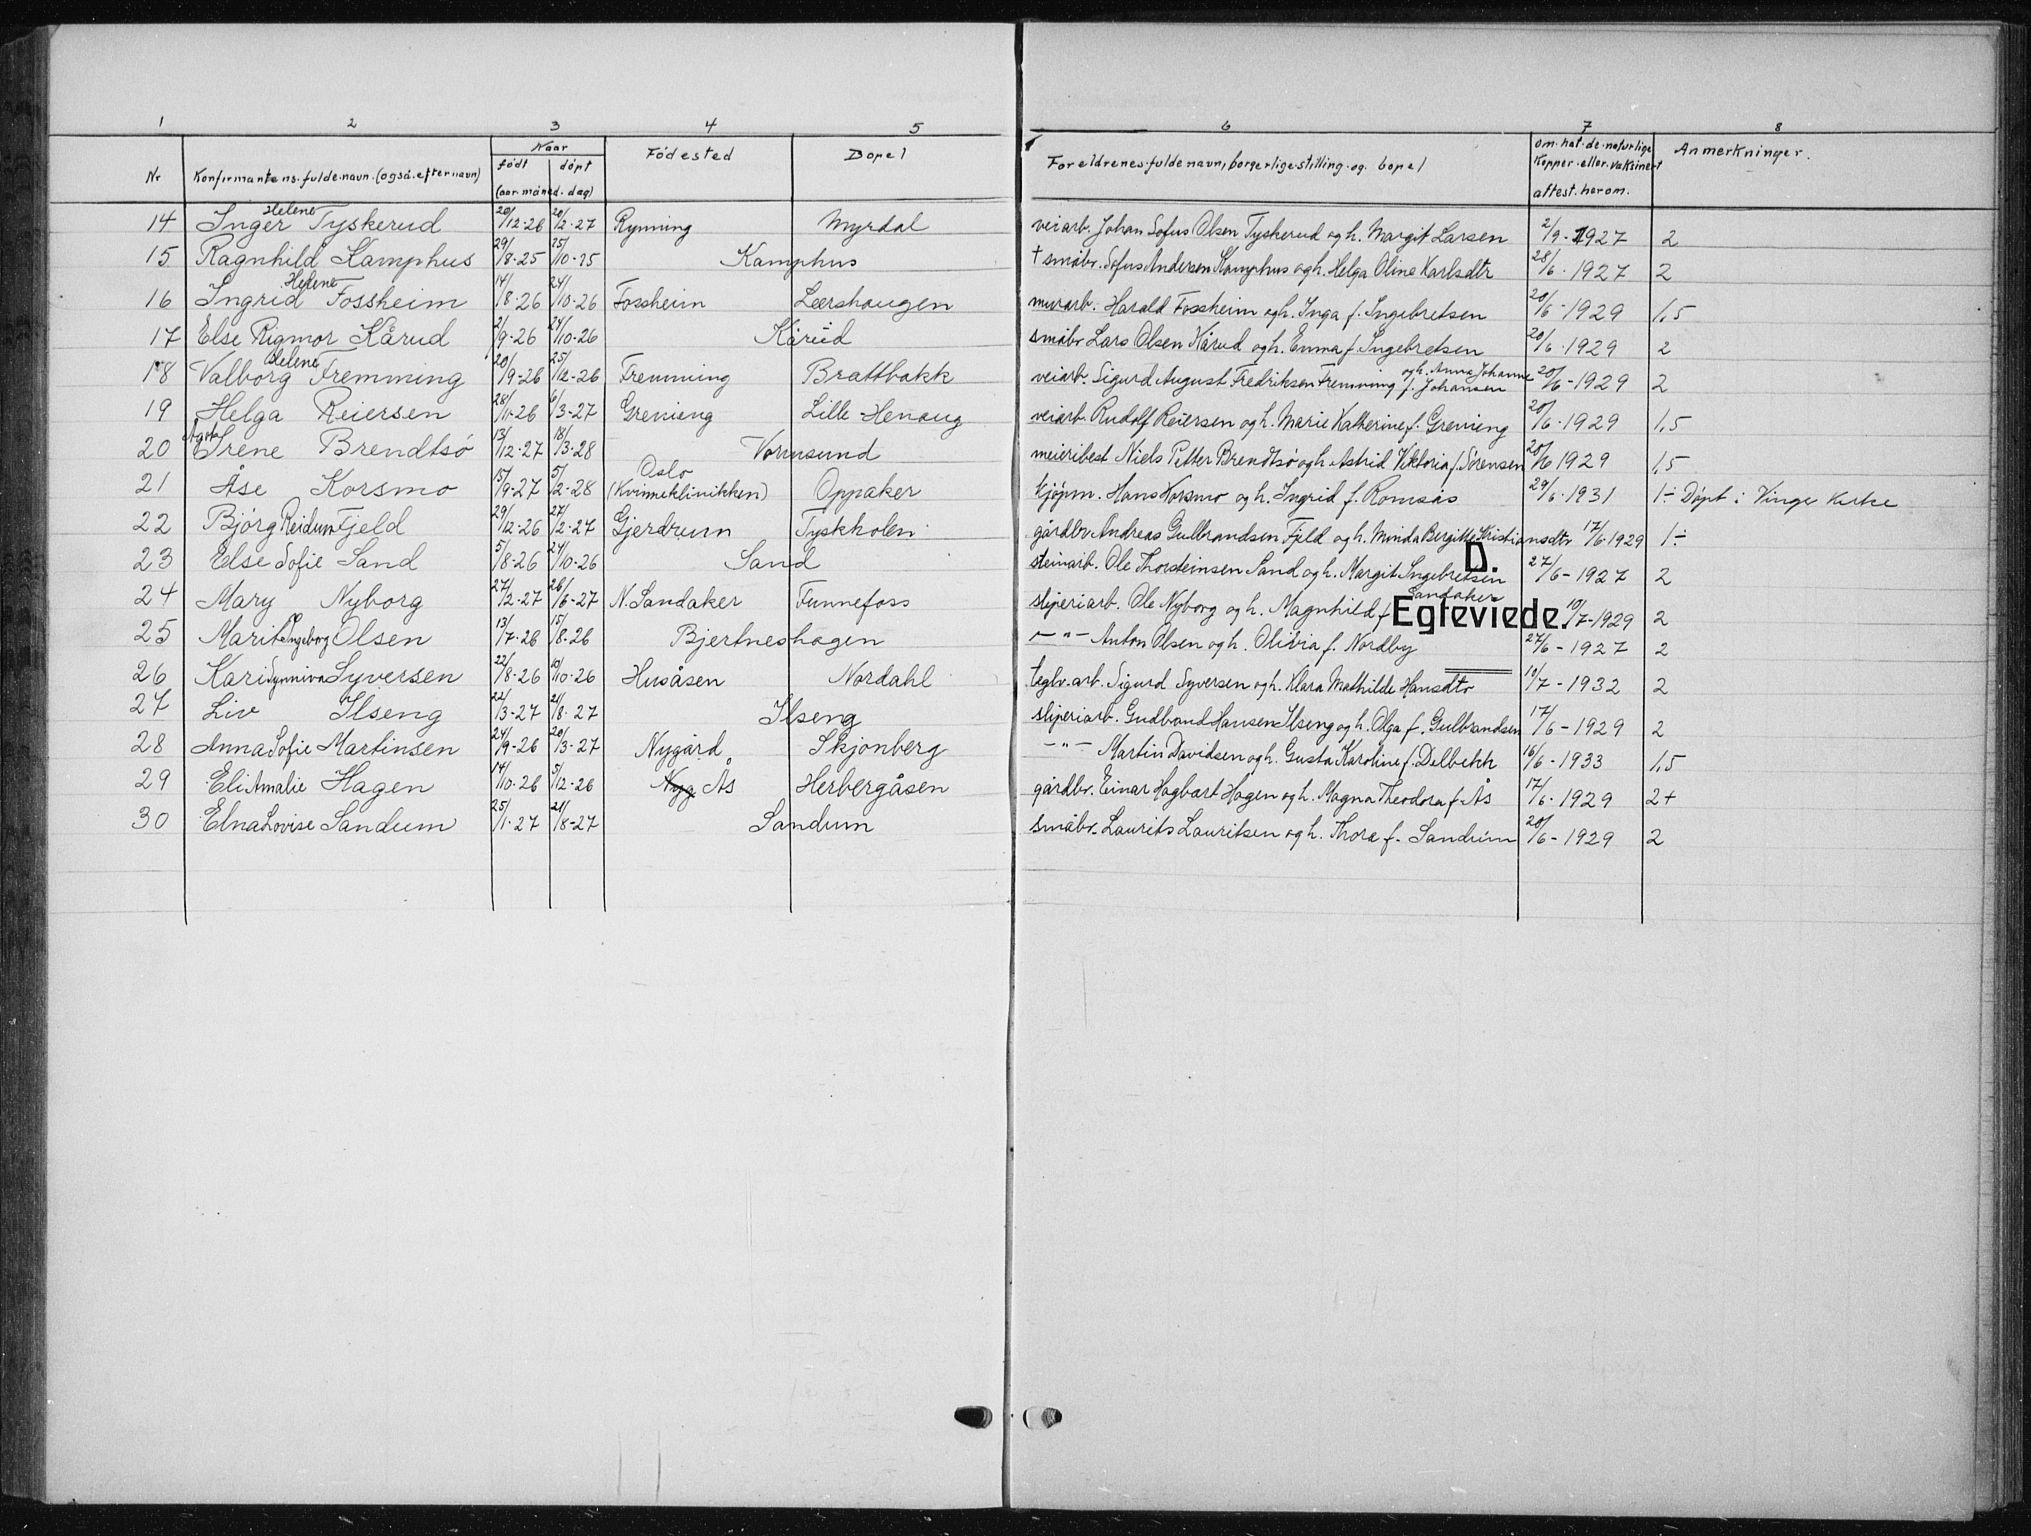 1 2 3 4 5 6 7 8
Nr Konfirmantens fulde navn (også efternavn) Naar født døpt (aar måned. dag) Fødested Bopel Foreldrenes fulde navn, borgerlige stilling og bopel om hat de naturlige kopper eller vaksinert attest herom. Anmerkninger.
14 Inger Helene Tyskerud 20/12-26 20/2-27 Rynning Myrdal veiarb. Johan Sofus Olsen Tyskerud og h. Margit Larsen 2/9-1927 2
15 Ragnhild Kamphus 29/8-25 25/10-25 Kamphus † småbr. Sofus Andersen Kamphus og h. Helga Oline Karlsdtr 28/6-1927 2
16 Ingrid Helene Fossheim 14/8-26 24/10-26 Fossheim Leershaugen murarb. Harald Fossheim og h. Inga f. Ingebretsen 20/6-1929 1,5
17 Else Rigmor Kårud 2/9-26 24/10-26 Kårud småbr Lars Olsen Kårud og h. Emma f. Ingebretsen 20/6-1929 2
18 Valborg Helene Fremming 20/9-26 25/12-26 Fremming Brattbakk veiarb. Sigurd August Fredriksen Fremming og h. Anna Johanne f. Johansen 20/6-1929 2
19 Helga Reiersen 28/11-26 6/3-27 Grenieng Lille-Henaug veiarb. Rudolf Reiersen og h. Marie Katherine f. Grenieng 20/6-1929 1,5
20 Agot Irene Brendtsø 13/12-27 18/3-28 Vormsund meieribest Niels Petter Brendtsø og h. Astrid Viktoria f. Sørensen 20/6 1929 1,5
21 Åse Korsmo 15/9-27 5/2-28 Oslo (Kvinneklinikken) Oppaker kjøpm. Hans Korsmo og h. Ingrid f. Romsås 29/6-1931 1÷ Døpt i Vinge kirke
22 Bjørg Reidun Fjeld 29/12-26 27/2-27 Gjerdrum Tyskholen gårdbr. Andreas Gulbrandsen Fjeld og h. Minda Bergitte Kristiansdtr 17/6-1929 1÷
23 Else Sofie Sand 5/8-26 24/10-26 Sand steinarb. Ole Thorsteinsen Sand og h. Margit Ingebretsen D. 27/6-1927 2
24 Mary Nyborg 27/2-27 26/6-27 N. Sandaker Funnefoss sliperiarb. Ole Nyborg og h. Magnhild f. Sandaker Egteviede. 10/7-1929 2
25 Marit Ingeborg Olsen 13/7-26 15/8-26 Bjertneshagen — " — Anton Olsen og h. Olivia f. Nordby 27/6-1927 2
26 Kari Synniva Syversen 22/8-26 10/10-26 Husåsen Nordahl teglv.arb. Sigurd Syversen og h. Klara Mathilde Hansdtr 10/7-1932 2
27 Liv Ilseng 22/3-27 21/8-27 Ilseng sliperiarb. Gudbrand Hansen Ilseng og h. Olga f. Gulbrandsen 17/6-1929 2
28 Anna Sofie Martinsen 24/9-26 20/3-27 Nygård Skjønberg — " — Martin Davidsen og h. Gusta Karoline f. Delbekk 16/6-1933 1,5
29 Eli Amalie Hagen 14/10-26 5/12-26 Nyg Ås Herbergåsen gårdbr. Einar Hagbart Hagen og h. Magna Theodora f. Ås 17/6-1929 2+
30 Elna Lovise Sandum 25/1-27 21/8-27 Sandum småbr. Laurits Lauritsen og h. Thora f. Sandum 20/6-1929 2